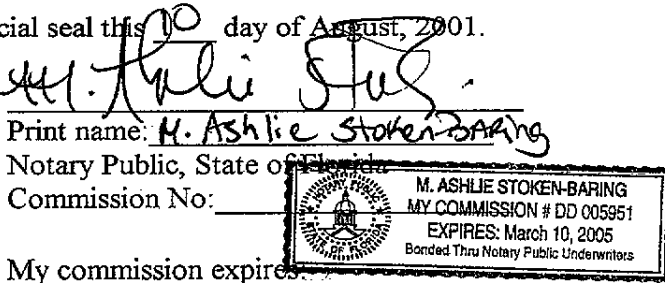 cial seal this 10 day of August, 2001.
M. Ashlie Stok
Print name: M. Ashlie Stoken-Baring
Notary Public, State of Florida
Commission No:
M. ASHLIE STOKEN-BARING
MY COMMISSION # DD 005951
EXPIRES: March 10, 2005
Bonded Thru Notary Public Underwriters
NOTARY PUBLIC
STATE OF FLORIDA
My commission expires: